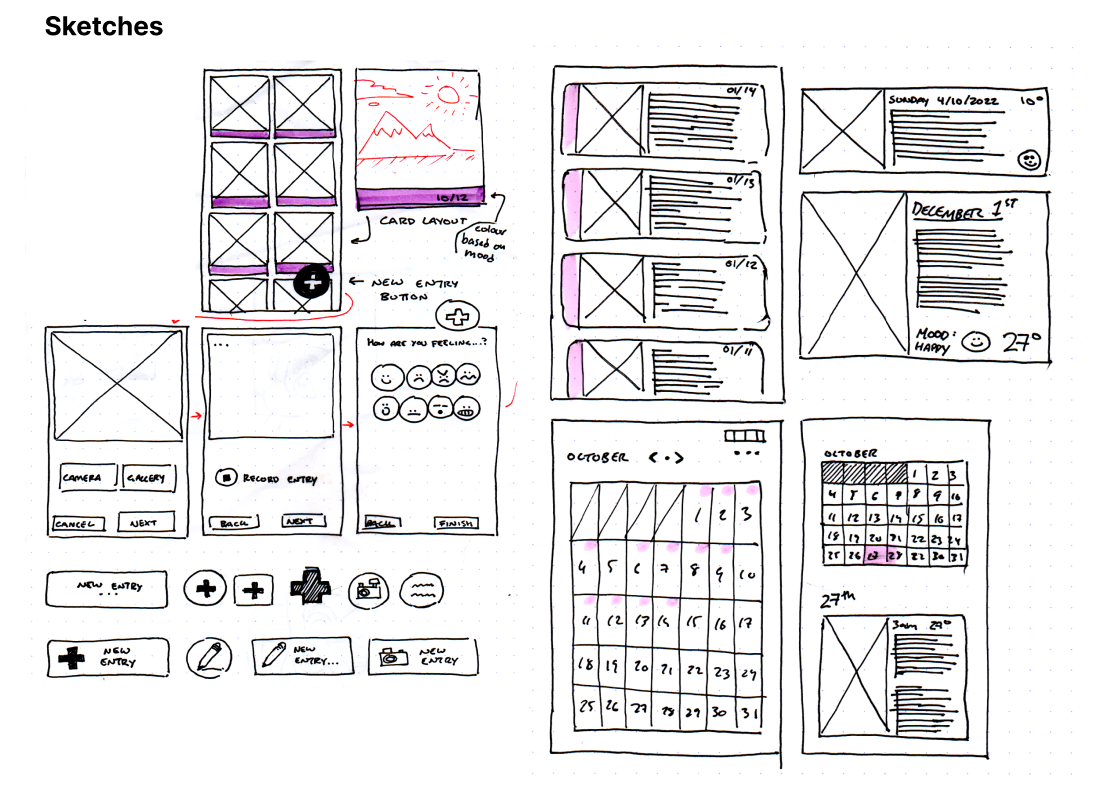 Sketches
10/12
CARD LAYOUT
colour
based on
mood
NEW ENTRY
BUTTON
CAMERA
GALLERY
CANCEL
NEXT
...
RECORD ENTRY
BACK
NEXT
HOW ARE YOU FEELING...?
BACK
FINISH
NEW ENTRY
...
NEW
ENTRY
NEW
ENTRY...
NEW
ENTRY
01/14
01/13
01/12
01/11
SUNDAY 4/10/2022 10°
DECEMBER 1ST
MOOD:
HAPPY
27°
OCTOBER < • >
...
1 2 3
4 5 6 7 8 9 10
11 12 13 14 15 16 17
18 19 20 21 22 23 24
25 26 27 28 29 30 31
OCTOBER
1 2 3
4 5 6 7 8 9 10
11 12 13 14 15 16 17
18 19 20 21 22 23 24
25 26 27 28 22 30 31
27th
3am 27°